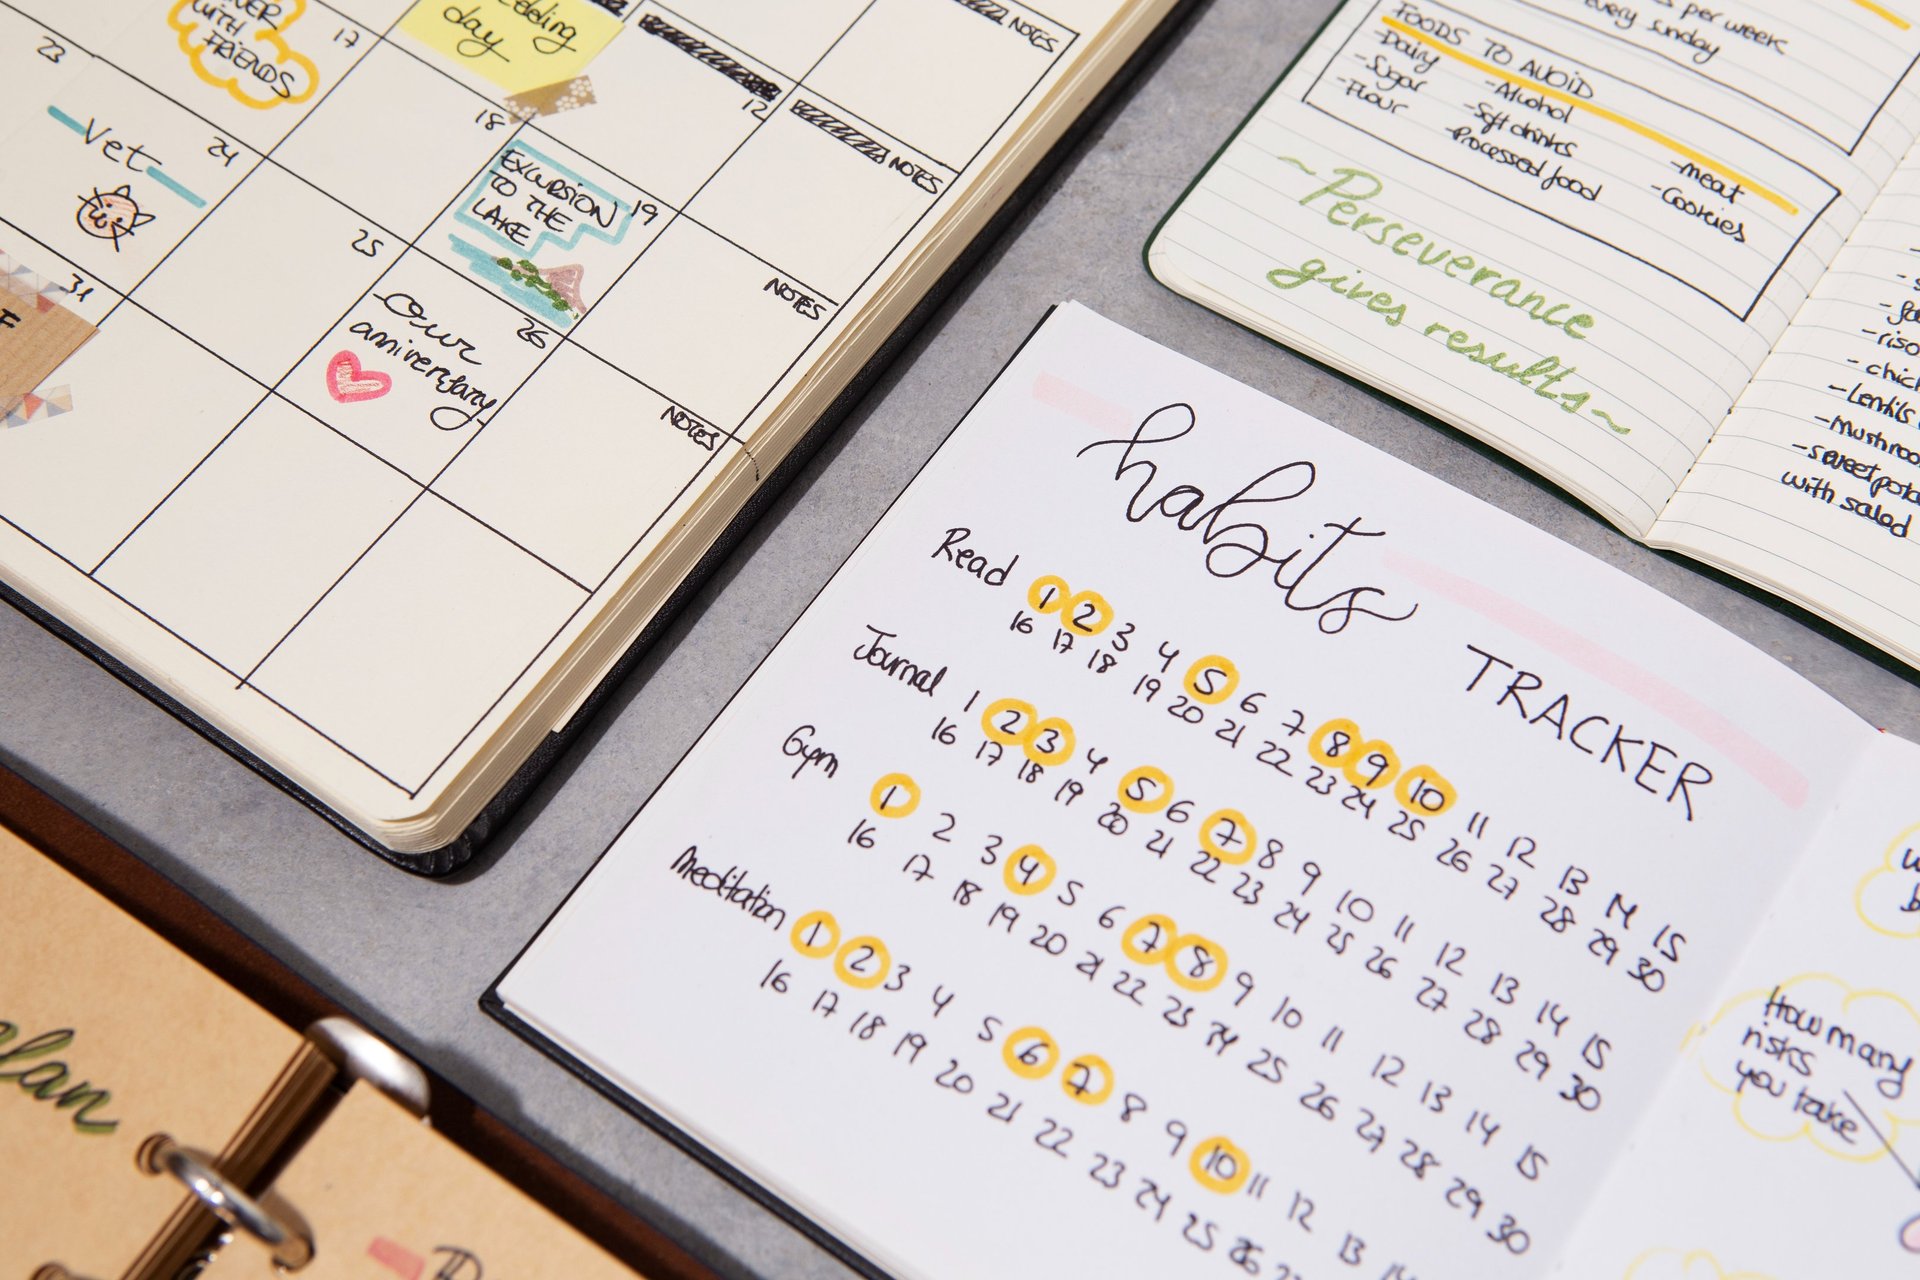 WITH
FRIENDS
17
day
NOTES
23
Vet
24
18
12
NOTES
EXCURSION
TO THE
LAKE
19
25
NOTES
31
F
Our
anniversary
26
NOTES
per week
every sunday
FOODS TO AVOID
-Dairy
-Sugar
-Flour
-Alcohol
-Soft drinks
-Processed food
-meat
-Cookies
~Perseverance
gives results~
-Lentils
with salad
habits
TRACKER
Read
1 2 3 4 5 6 7 8 9 10 11 12 13 14 15
16 17 18 19 20 21 22 23 24 25 26 27 28 29 30
Journal
1 2 3 4 5 6 7 8 9 10 11 12 13 14 15
16 17 18 19 20 21 22 23 24 25 26 27 28 29 30
Gym
1 2 3 4 5 6 7 8 9 10 11 12 13 14 15
16 17 18 19 20 21 22 23 24 25 26 27 28 29 30
Meditation
1 2 3 4 5 6 7 8 9 10 11 12 13 14
16 17 18 19 20 21 22 23 24 25 26 27
How many
risks
you take
plan